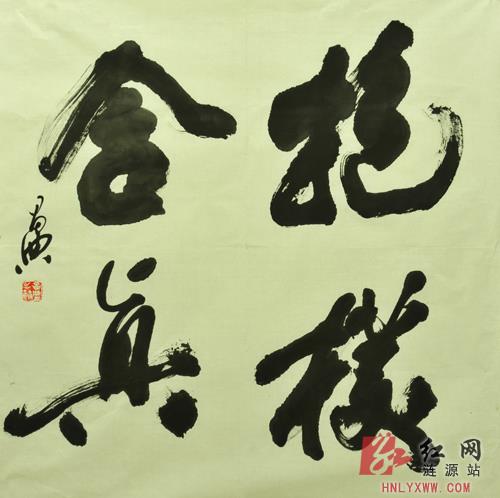 抱樸
含真
红网
涟源站
HNLYXWW.COM